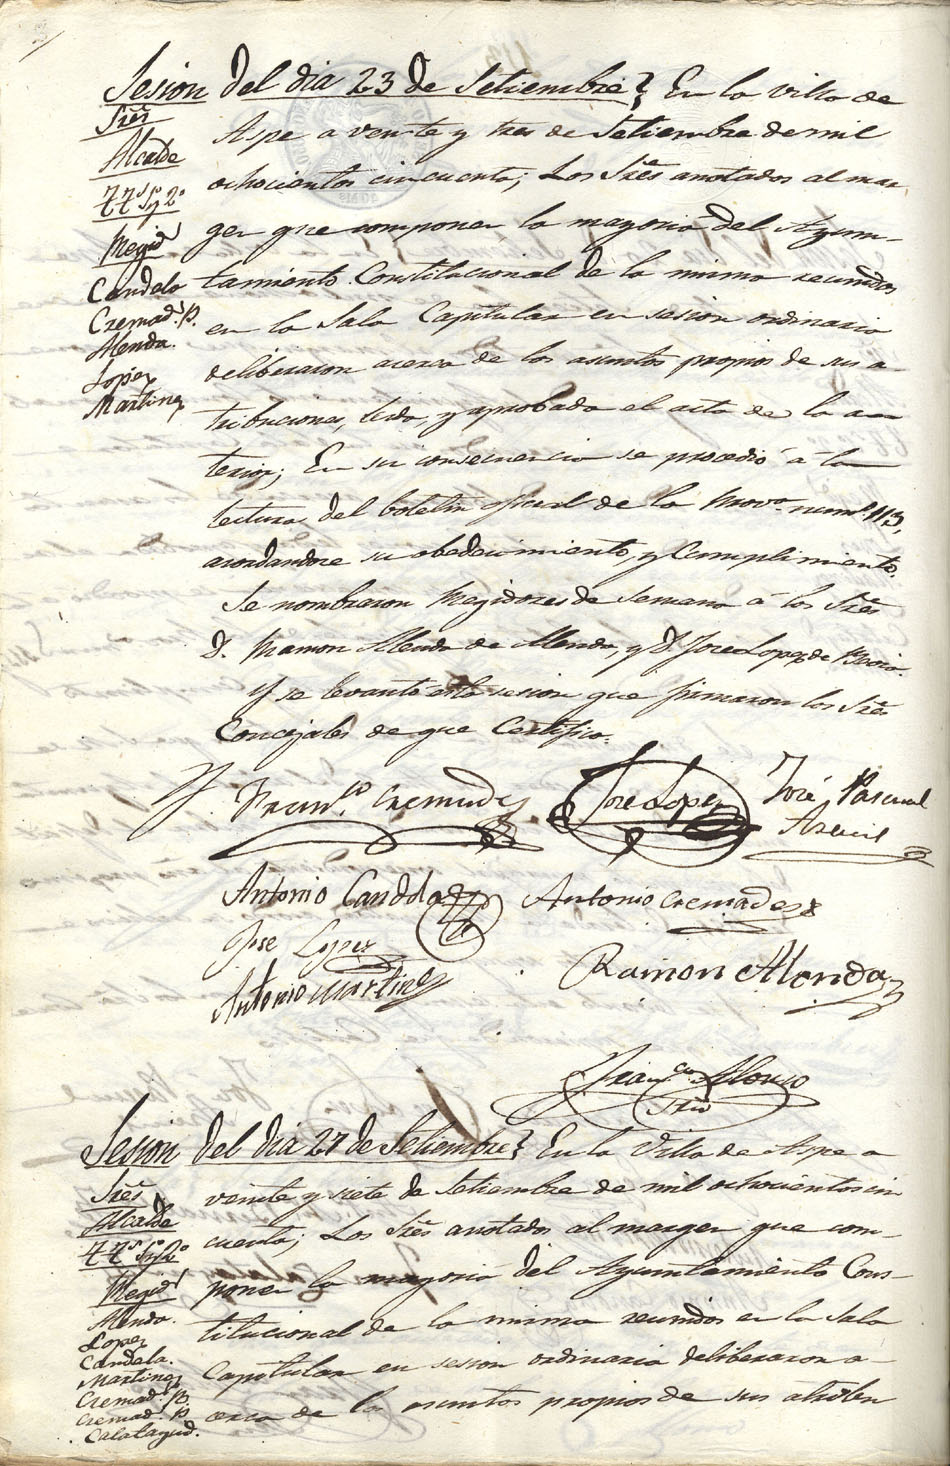 Sesion del dia 23 de Setiembre } En la villa de
Aspe a veinte y tres de Setiembre de mil
ochocientos cincuenta; Los Sres anotados al mar
gen que componen la mayoria del Ayun-
tamiento Constitucional de la misma reunidos
en la Sala Capitular en sesion ordinaria
deliberaron acerca de los asuntos propios de sus a-
tribuciones, leida, y aprobada el acta de la an
terior; En su consecuencia se procedió á la
lectura del boletin oficial de la Prova numo 113,
acordandose su obedecimiento, y Cumplimiento.
Se nombraron Regidores de semana á los Sres
D. Ramon Alenda de Alenda, y D. Jose Lopez de
Y se levantó esta sesion que firmaron los Sres
Concejales de que Certifico.
Sres
Alcalde
Ttes 1o y 2o
Regid
Candela
Cremad. P.
Alenda.
Lopez
Martinez
Franco Cremades
Jose Lopez
José Pascual
Antonio Candela
Antonio Cremades
Jose Lopez
Ramon Alenda
Antonio Martinez
Franco Alonso
Srio
Sesion del dia 27 de Setiembre } En la Villa de Aspe a
veinte y siete de Setiembre de mil ochocientos cin
cuenta; Los Sres anotados al margen que com-
ponen la mayoria del Ayuntamiento Cons-
titucional de la misma reunidos en la Sala
Capitular en sesion ordinaria deliberaron a-
cerca de los asuntos propios de sus atribu
Sres
Alcalde
Ttes 1o y 2o
Regid
Alenda.
Lopez
Candela.
Martinez
Cremad. B.
Cremad. P.
Calatayud.